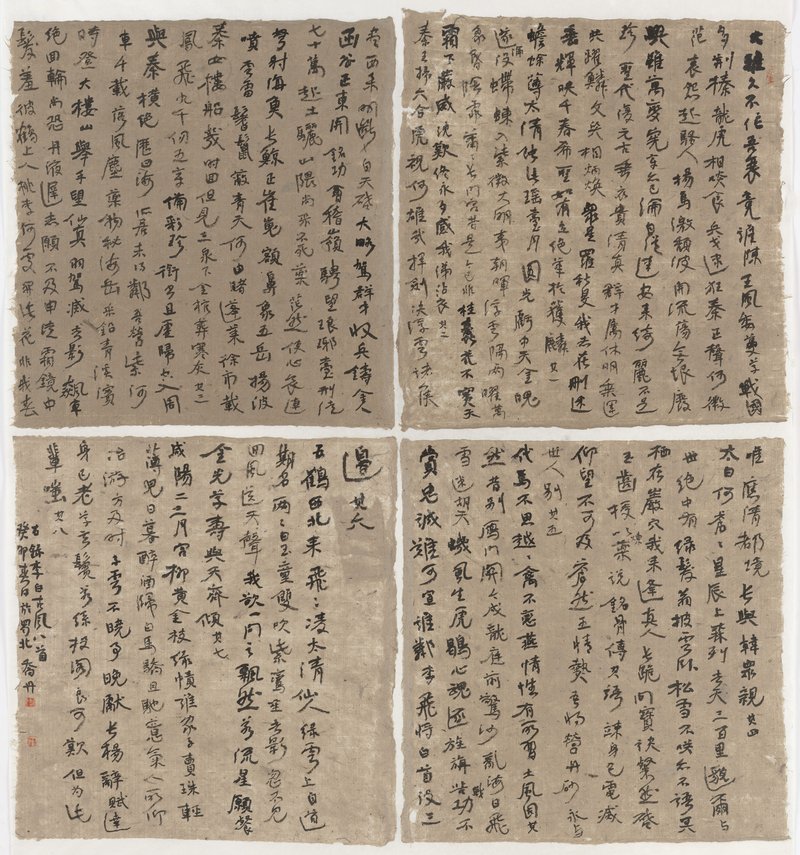 大雅久不作吾衰竟誰陳王風委蔓草戰國
多荊榛龍虎相啖食兵戈逮狂秦正聲何微
茫哀怨起騷人揚馬激頹波開流蕩無垠廢
興雖萬變憲章亦已淪自從建安來綺麗不足
珍聖代復元古垂衣貴清真群才屬休明乘運
共躍鱗文質相炳煥眾星羅秋旻我志在刪述
垂輝映千春希聖如有立絕筆於獲麟其一
蟾蜍薄太清蝕此瑤臺月圓光虧中天金魄
遂淪沒蝃蝀入紫微大明夷朝暉浮雲隔兩曜萬
象昏陰霏蕭〃長門宮昔是今已非桂蠹花不實天
霜下嚴威沈歎終永夕感我涕沾衣其二
秦王掃六合虎視何雄哉揮劍決浮雲諸侯
盡西來明斷自天啟大略駕群才收兵鑄金人
函谷正東開銘功會稽嶺騁望琅琊臺刑徒
七十萬起土驪山隈尚采不死藥茫然使心哀連
弩射海魚長鯨正崔嵬額鼻象五岳揚波
噴雲雷鬐鬣蔽青天何由睹蓬萊徐市載
秦女樓船幾時回但見三泉下金棺葬寒灰其三
鳳飛九千仞五章備彩珍銜書且虛歸空入周
與秦橫絕歷四海所居未得鄰吾營紫河
車千載落風塵藥物秘海岳采鉛青溪濱
時登大樓山舉手望仙真羽駕滅去影飆車
絕回輪尚恐丹液遲志願不及申徒霜鏡中
髮羞彼鶴上人桃李何處開此花非我春
唯應清都境長與韓眾親其四
太白何蒼〃星辰上森列去天三百里邈爾與
世絕中有綠髮翁披雲臥松雪不笑亦不語冥
棲在巖穴我來逢真人長跪問寶訣粲然啟
玉齒授以煉藥說銘骨傳其語竦身已電滅
仰望不可及蒼然五情熱吾將營丹砂永與
世人別其五
代馬不思越〃禽不戀燕情性有所習土風固其
然昔別雁門關今戍龍庭前驚沙亂海日飛
雪迷胡天蟣虱生虎鶡心魂逐旌旃苦戰功不
賞忠誠難可宣誰憐李飛將白首沒三
邊其六
五鶴西北來飛〃凌太清仙人綠雲上自道安
期名兩〃白玉童雙吹紫鸞笙去影忽不見
回風送天聲我欲一問之飄然若流星願餐
金光草壽與天齊傾其七
咸陽二三月宮柳黃金枝綠幘誰家子賣珠輕
薄兒日暮醉酒歸白馬驕且馳意氣人所仰
冶游方及時子雲不曉事晚獻長楊辭賦達
身已老草玄鬢若絲投閣良可歎但為此
輩嗤其八
右錄李白古風八首
癸卯春日於 北喬丹